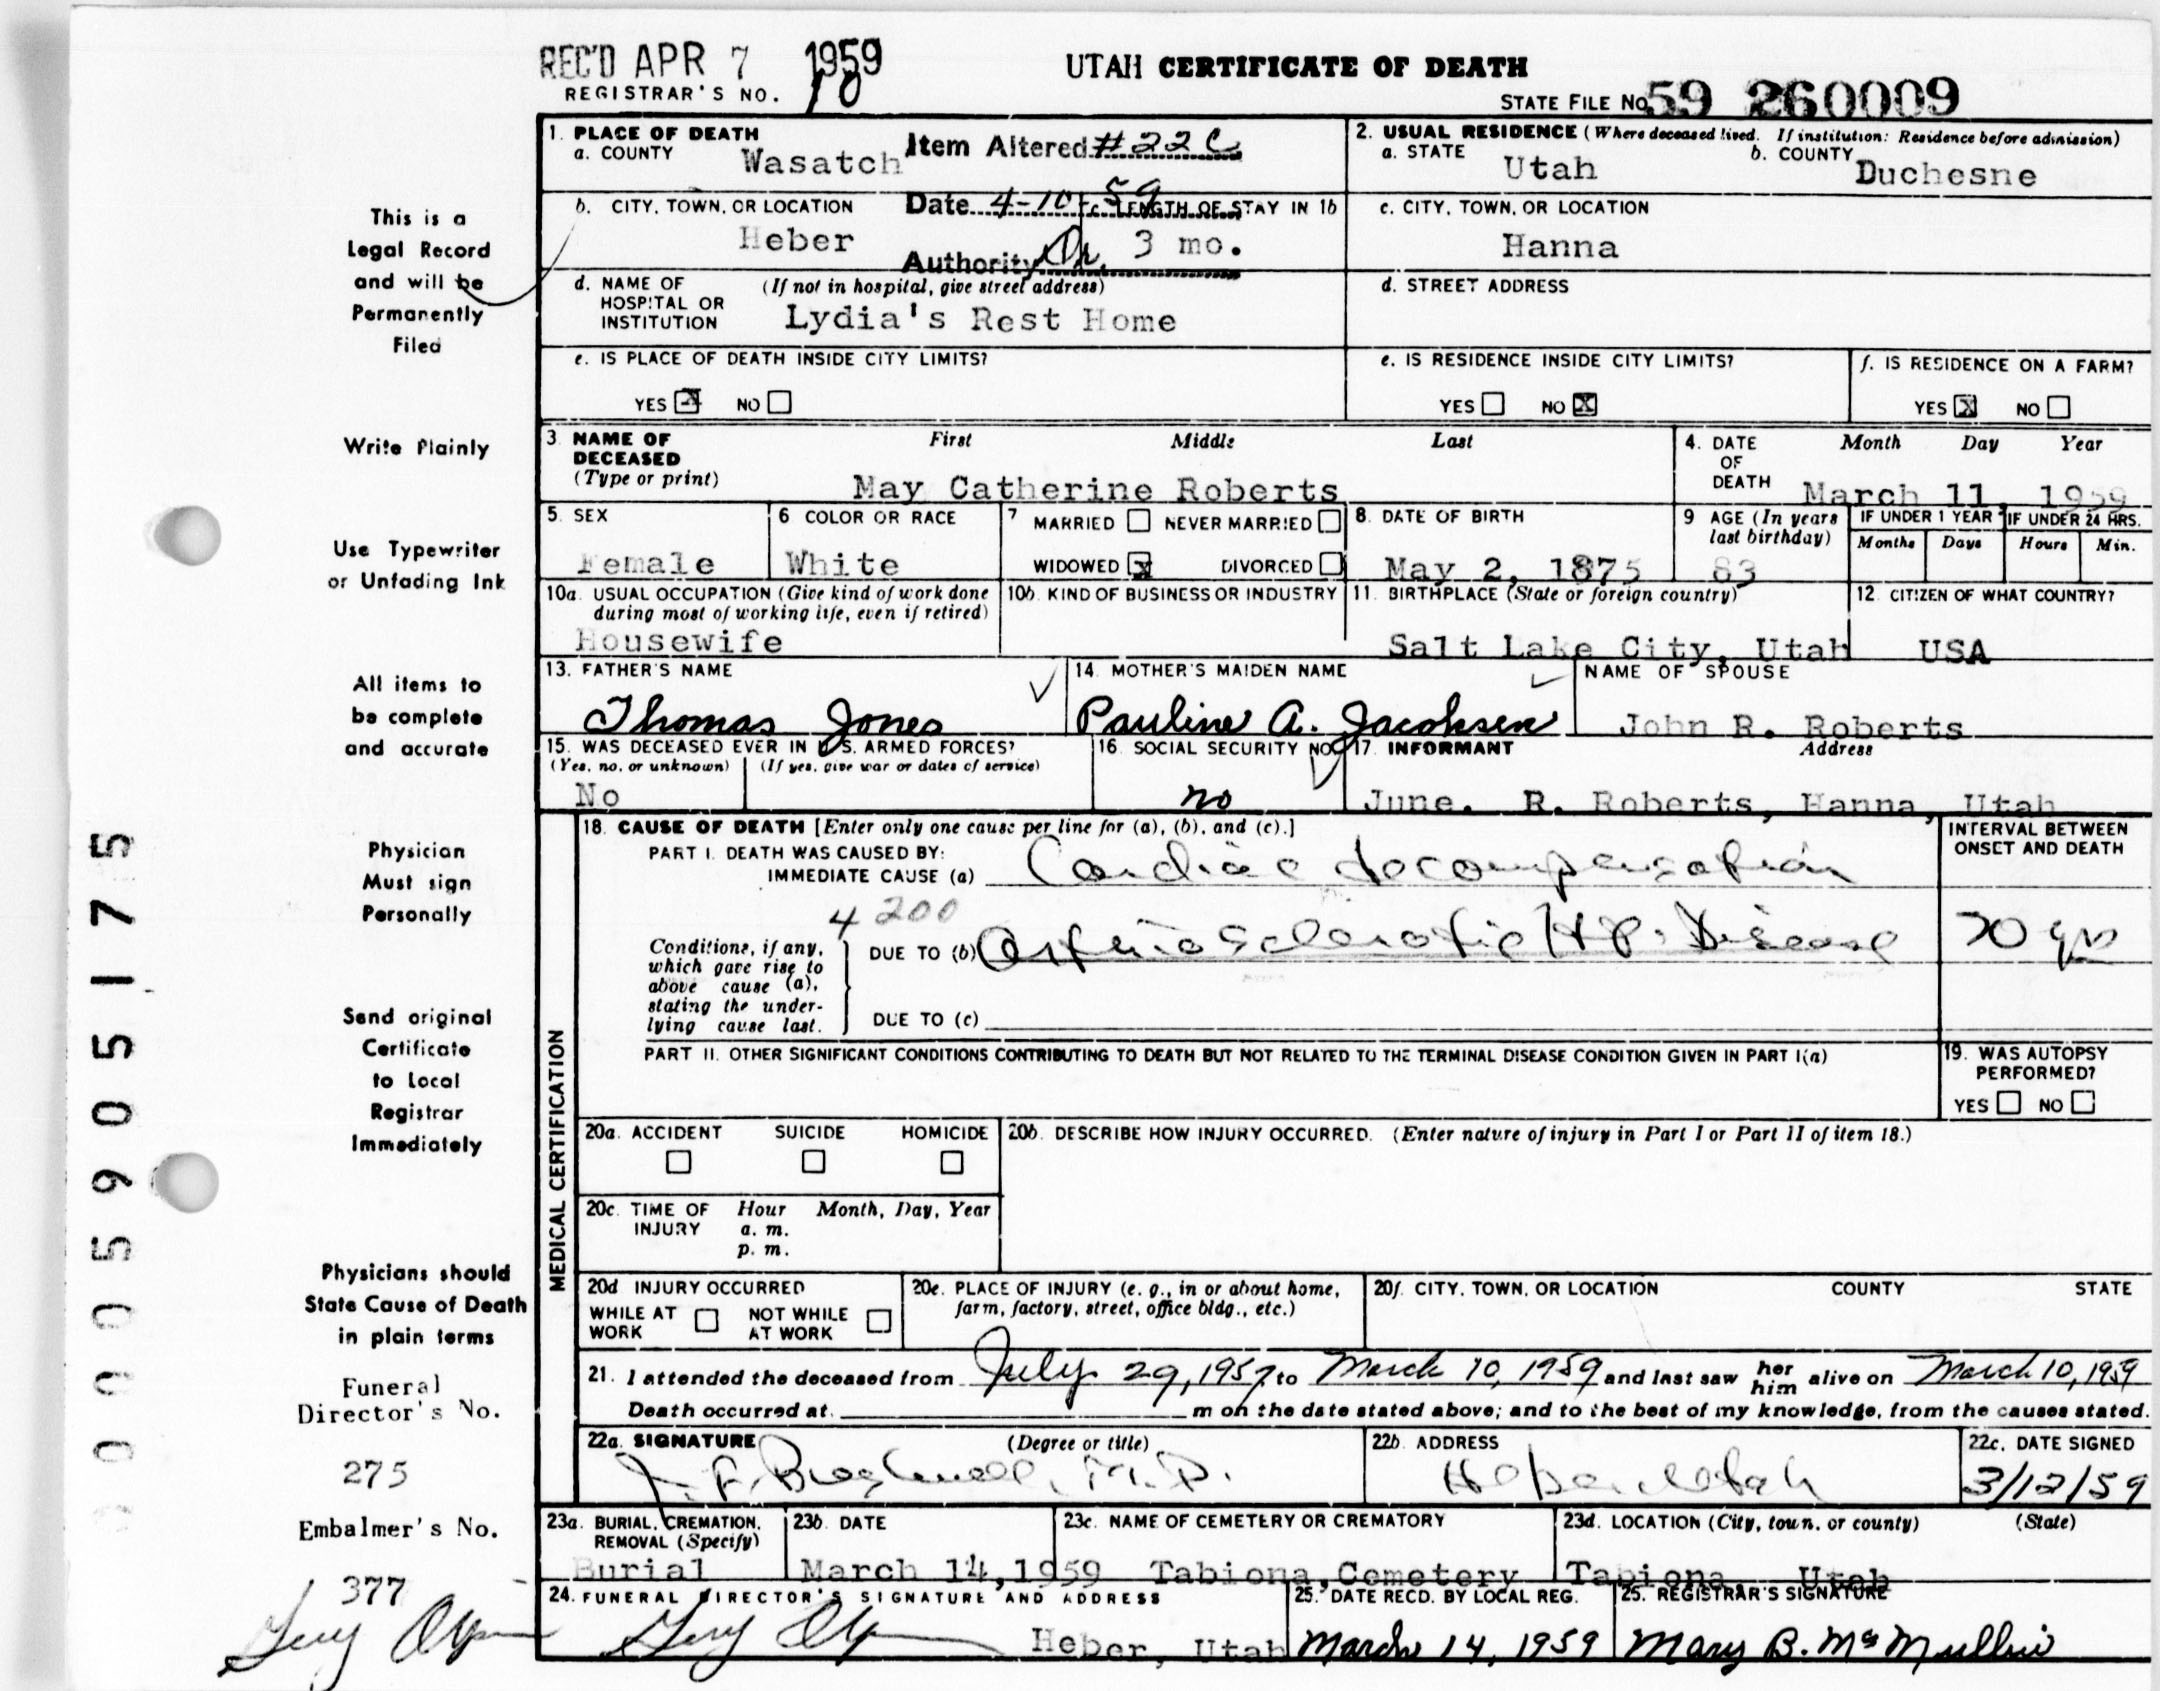 REC'D APR 7 1959
REGISTRAR'S NO. 10
UTAH CERTIFICATE OF DEATH
STATE FILE No. 59 260009
1. PLACE OF DEATH
a. COUNTY Wasatch
Item Altered #22C
2. USUAL RESIDENCE (Where deceased lived. If institution: Residence before admission)
a. STATE Utah b. COUNTY Duchesne
b. CITY, TOWN, OR LOCATION Heber
Date 4-10-59
Authority Dr.
c. LENGTH OF STAY IN 1b 3 mo.
c. CITY, TOWN, OR LOCATION
Hanna
d. NAME OF HOSPITAL OR INSTITUTION (If not in hospital, give street address)
Lydia's Rest Home
d. STREET ADDRESS
e. IS PLACE OF DEATH INSIDE CITY LIMITS?
YES X NO
e. IS RESIDENCE INSIDE CITY LIMITS?
YES NO X
f. IS RESIDENCE ON A FARM?
YES X NO
3. NAME OF DECEASED (Type or print) First Middle Last
May Catherine Roberts
4. DATE OF DEATH Month Day Year
March 11, 1959
5. SEX
Female
6 COLOR OR RACE
White
7 MARRIED NEVER MARRIED
WIDOWED X DIVORCED
8. DATE OF BIRTH
May 2, 1875
9 AGE (In years last birthday)
83
IF UNDER 1 YEAR
Months Days
IF UNDER 24 HRS.
Hours Min.
10a. USUAL OCCUPATION (Give kind of work done during most of working life, even if retired)
Housewife
10b. KIND OF BUSINESS OR INDUSTRY
11. BIRTHPLACE (State or foreign country)
Salt Lake City, Utah
12. CITIZEN OF WHAT COUNTRY?
USA
13. FATHER'S NAME
Thomas Jones
14. MOTHER'S MAIDEN NAME
Pauline A. Jacobsen
NAME OF SPOUSE
John R. Roberts
15. WAS DECEASED EVER IN U.S. ARMED FORCES?
(Yes, no, or unknown) (If yes, give war or dates of service)
No
16. SOCIAL SECURITY NO.
no
17. INFORMANT Address
June. R. Roberts, Hanna, Utah
MEDICAL CERTIFICATION
18. CAUSE OF DEATH [Enter only one cause per line for (a), (b), and (c).]
PART I. DEATH WAS CAUSED BY:
IMMEDIATE CAUSE (a) Cardiac decompensation
INTERVAL BETWEEN ONSET AND DEATH
4200
Conditions, if any, which gave rise to above cause (a), stating the underlying cause last.
DUE TO (b) Arteriosclerotic Ht. Disease
20 yrs
DUE TO (c)
PART II. OTHER SIGNIFICANT CONDITIONS CONTRIBUTING TO DEATH BUT NOT RELATED TO THE TERMINAL DISEASE CONDITION GIVEN IN PART I(a)
19. WAS AUTOPSY PERFORMED?
YES NO
20a. ACCIDENT SUICIDE HOMICIDE
20b. DESCRIBE HOW INJURY OCCURRED. (Enter nature of injury in Part I or Part II of item 18.)
20c. TIME OF INJURY Hour Month, Day, Year
a. m.
p. m.
20d INJURY OCCURRED
WHILE AT WORK NOT WHILE AT WORK
20e. PLACE OF INJURY (e. g., in or about home, farm, factory, street, office bldg., etc.)
20f. CITY, TOWN, OR LOCATION COUNTY STATE
21. I attended the deceased from July 29, 1957 to March 10, 1959 and last saw her him alive on March 10, 1959
Death occurred at m on the date stated above; and to the best of my knowledge, from the causes stated.
22a. SIGNATURE (Degree or title)
M.D.
22b. ADDRESS
Heber, Utah
22c. DATE SIGNED
3/12/59
23a. BURIAL, CREMATION, REMOVAL (Specify)
Burial
23b. DATE
March 14, 1959
23c. NAME OF CEMETERY OR CREMATORY
Tabiona, Cemetery
23d. LOCATION (City, town, or county) (State)
Tabiona, Utah
24. FUNERAL DIRECTOR'S SIGNATURE AND ADDRESS
Heber, Utah
25. DATE RECD. BY LOCAL REG.
March 14, 1959
25. REGISTRAR'S SIGNATURE
Mary B. McMullin
This is a
Legal Record
and will be
Permanently
Filed
Write Plainly
Use Typewriter
or Unfading Ink
All items to
be complete
and accurate
Physician
Must sign
Personally
Send original
Certificate
to Local
Registrar
Immediately
Physicians should
State Cause of Death
in plain terms
Funeral
Director's No.
275
Embalmer's No.
377
0005905175